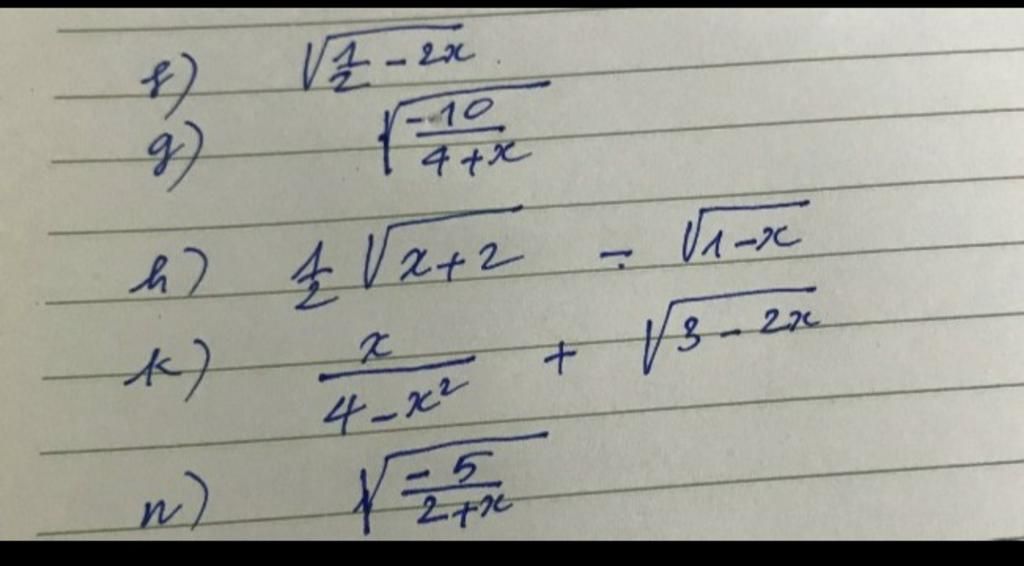 f) √(1/2 - 2x)
g) √(-10/(4+x))
h) 1/2 √(x+2) - √(1-x)
k) x/(4-x²) + √(3-2x)
n) √(-5/(2+x))